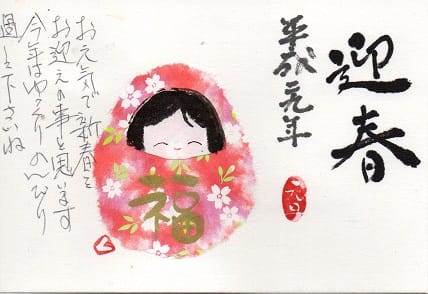 迎春
平成元年
元旦
福
お元気で新春を
お迎えの事と思います
今年はゆっくりのんびり
過して下さいね